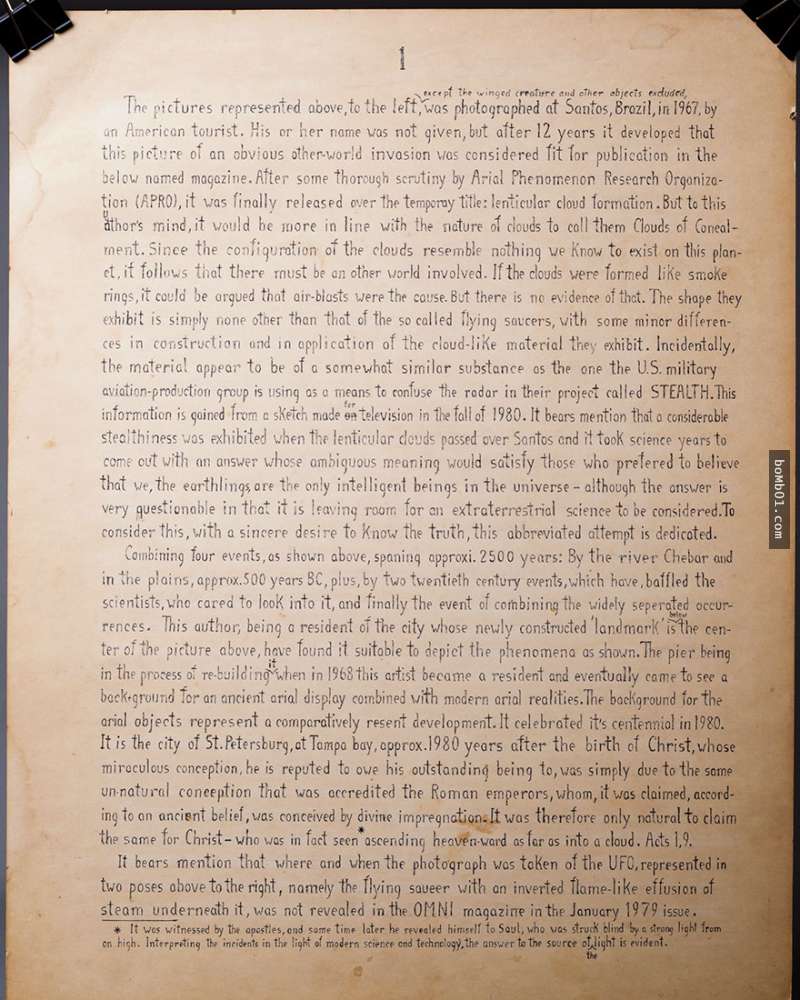 1
except the winged creature and other objects excluded,
The pictures represented above, to the left, was photographed at Santos, Brazil, in 1967, by
an American tourist. His or her name was not given, but after 12 years it developed that
this picture of an obvious other-world invasion was considered fit for publication in the
below named magazine. After some thorough scrutiny by Arial Phenomenon Research Organiza-
tion (APRO), it was finally released over the temporay title: lenticular cloud formation. But to this
author's mind, it would be more in line with the nature of clouds to call them Clouds of Conceal-
ment. Since the configuration of the clouds resemble nothing we know to exist on this plan-
et, it follows that there must be an other world involved. If the clouds were formed like smoke
rings, it could be argued that air-blasts were the cause. But there is no evidence of that. The shape they
exhibit is simply none other than that of the so called flying saucers, with some minor differen-
ces in construction and in application of the cloud-like material they exhibit. Incidentally,
the material appear to be of a somewhat similar substance as the one the U.S. military
aviation-production group is using as a means to confuse the radar in their project called STEALTH. This
information is gained from a sketch made for television in the fall of 1980. It bears mention that a considerable
stealthiness was exhibited when the lenticular clouds passed over Santos and it took science years to
come out with an answer whose ambiguous meaning would satisfy those who prefered to believe
that we, the earthlings, are the only intelligent beings in the universe – although the answer is
very questionable in that it is leaving room for an extraterrestrial science to be considered. To
consider this, with a sincere desire to know the truth, this abbreviated attempt is dedicated.
Combining four events, as shown above, spaning approxi. 2500 years: By the river Chebar and
in the plains, approx. 500 years BC, plus, by two twentieth century events, which have, baffled the
scientists, who cared to look into it, and finally the event of combining the widely seperated occur-
rences. This author, being a resident of the city whose newly constructed 'landmark' is below the cen-
ter of the picture above, have found it suitable to depict the phenomena as shown. The pier being
in the process of re-building it when in 1968 this artist became a resident and eventually came to see a
background for an ancient arial display combined with modern arial realities. The background for the
arial objects represent a comparatively resent development. It celebrated it's centennial in 1980.
It is the city of St. Petersburg, at Tampa bay, approx. 1980 years after the birth of Christ, whose
miraculous conception, he is reputed to owe his outstanding being to, was simply due to the same
un-natural conception that was accredited the Roman emperors, whom, it was claimed, accord-
ing to an ancient belief, was conceived by divine impregnation. It was therefore only natural to claim
the same for Christ – who was in fact seen * ascending heaven-ward as far as into a cloud. Acts 1,9.
It bears mention that where and when the photograph was taken of the UFO, represented in
two poses above to the right, namely the flying saucer with an inverted flame-like effusion of
steam underneath it, was not revealed in the OMNI magazine in the January 1979 issue.
* It was witnessed by the apostles, and some time later he revealed himself to Saul, who was struck blind by a strong light from
on high. Interpreting the incidents in the light of modern science and technology, the answer to the source of the light is evident.
bomb01.com